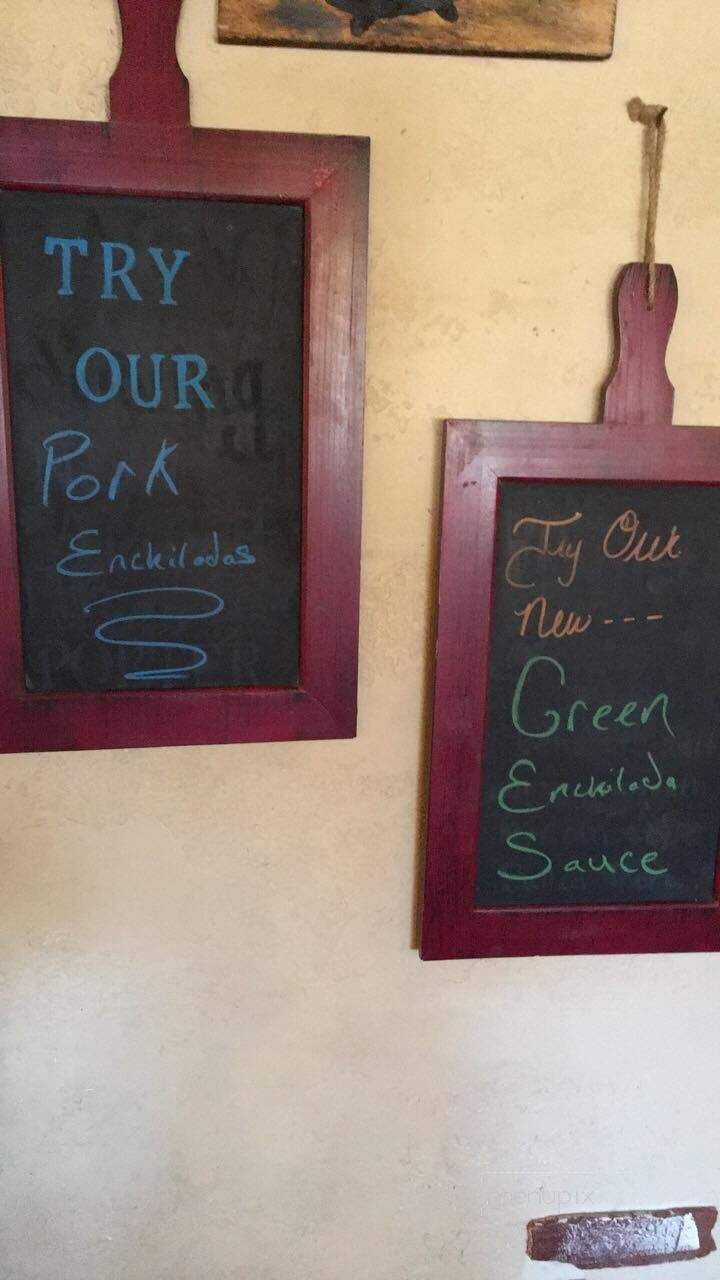 TRY
OUR
Pork
Enchiladas
Try Our
New---
Green
Enchilada
Sauce
menupix